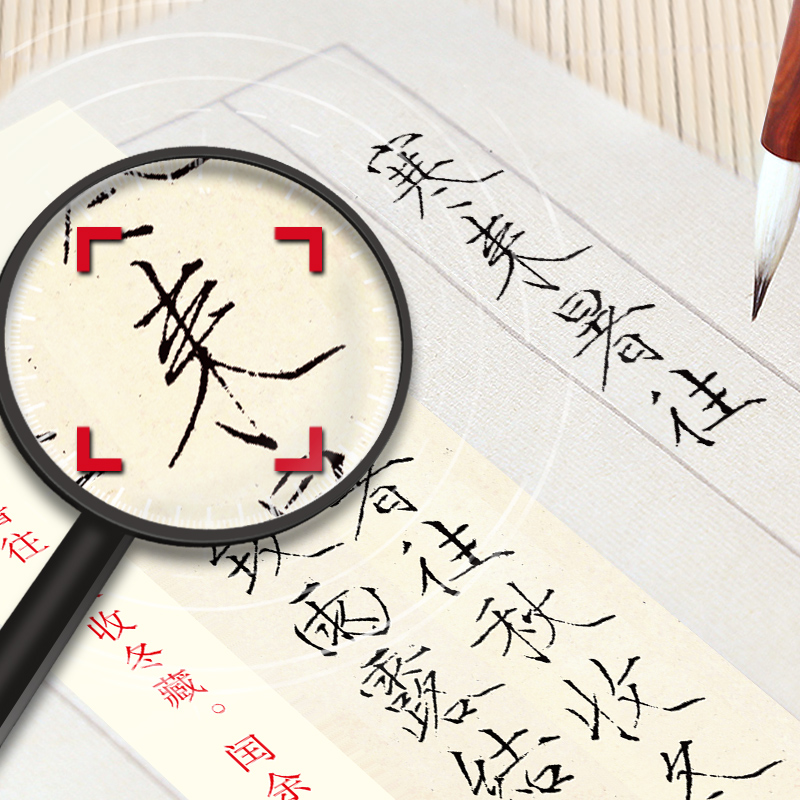 寒来暑往
来
暑往秋收冬
致雨露結
往
收冬藏。闰余